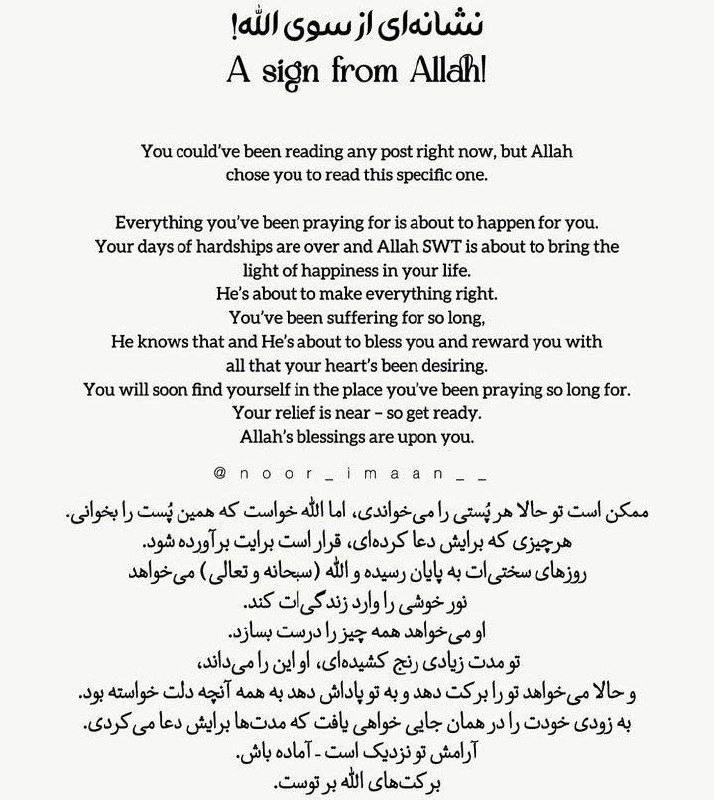 نشانه‌ای از سوی الله!
A sign from Allah!
You could’ve been reading any post right now, but Allah
chose you to read this specific one.
Everything you’ve been praying for is about to happen for you.
Your days of hardships are over and Allah SWT is about to bring the
light of happiness in your life.
He’s about to make everything right.
You’ve been suffering for so long,
He knows that and He’s about to bless you and reward you with
all that your heart’s been desiring.
You will soon find yourself in the place you’ve been praying so long for.
Your relief is near – so get ready.
Allah’s blessings are upon you.
@noor_imaan__
ممکن است تو حالا هر پُستی را می‌خواندی، اما الله خواست که همین پُست را بخوانی.
هرچیزی که برایش دعا کرده‌ای، قرار است برایت برآورده شود.
روزهای سختی‌ات به پایان رسیده و الله (سبحانه و تعالی) می‌خواهد
نور خوشی را وارد زندگی‌ات کند.
او می‌خواهد همه چیز را درست بسازد.
تو مدت زیادی رنج کشیده‌ای، او این را می‌داند،
و حالا می‌خواهد تو را برکت دهد و به تو پاداش دهد به همه آنچه دلت خواسته بود.
به زودی خودت را در همان جایی خواهی یافت که مدت‌ها برایش دعا می‌کردی.
آرامش تو نزدیک است - آماده باش.
برکت‌های الله بر توست.